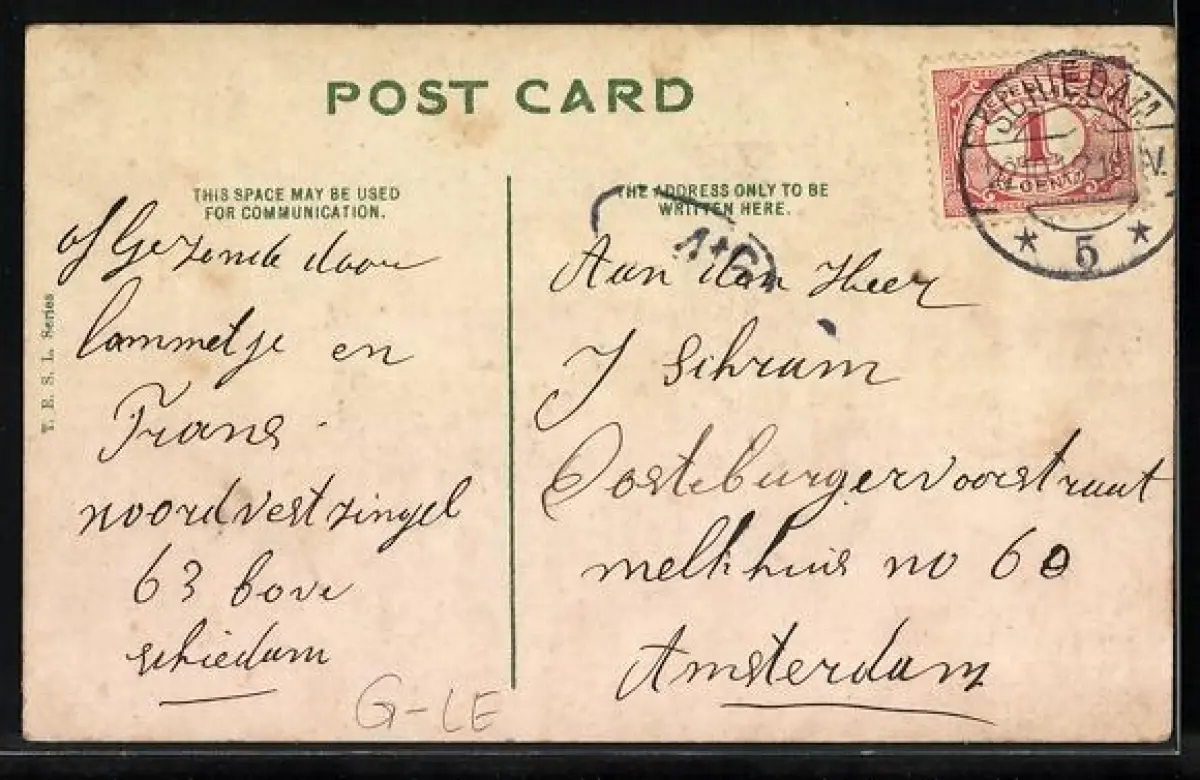 POST CARD
THIS SPACE MAY BE USED
FOR COMMUNICATION.
THE ADDRESS ONLY TO BE
WRITTEN HERE.
T. E. S. L. Series
SCHIEDAM
1
5
afgezonde door
Lammetje en
Frans
noordvestzingel
63 bove
schiedam
Aan den Heer
J Schram
Oosteburgervoorstraat
melkhuis no 60
Amsterdam
G-LE